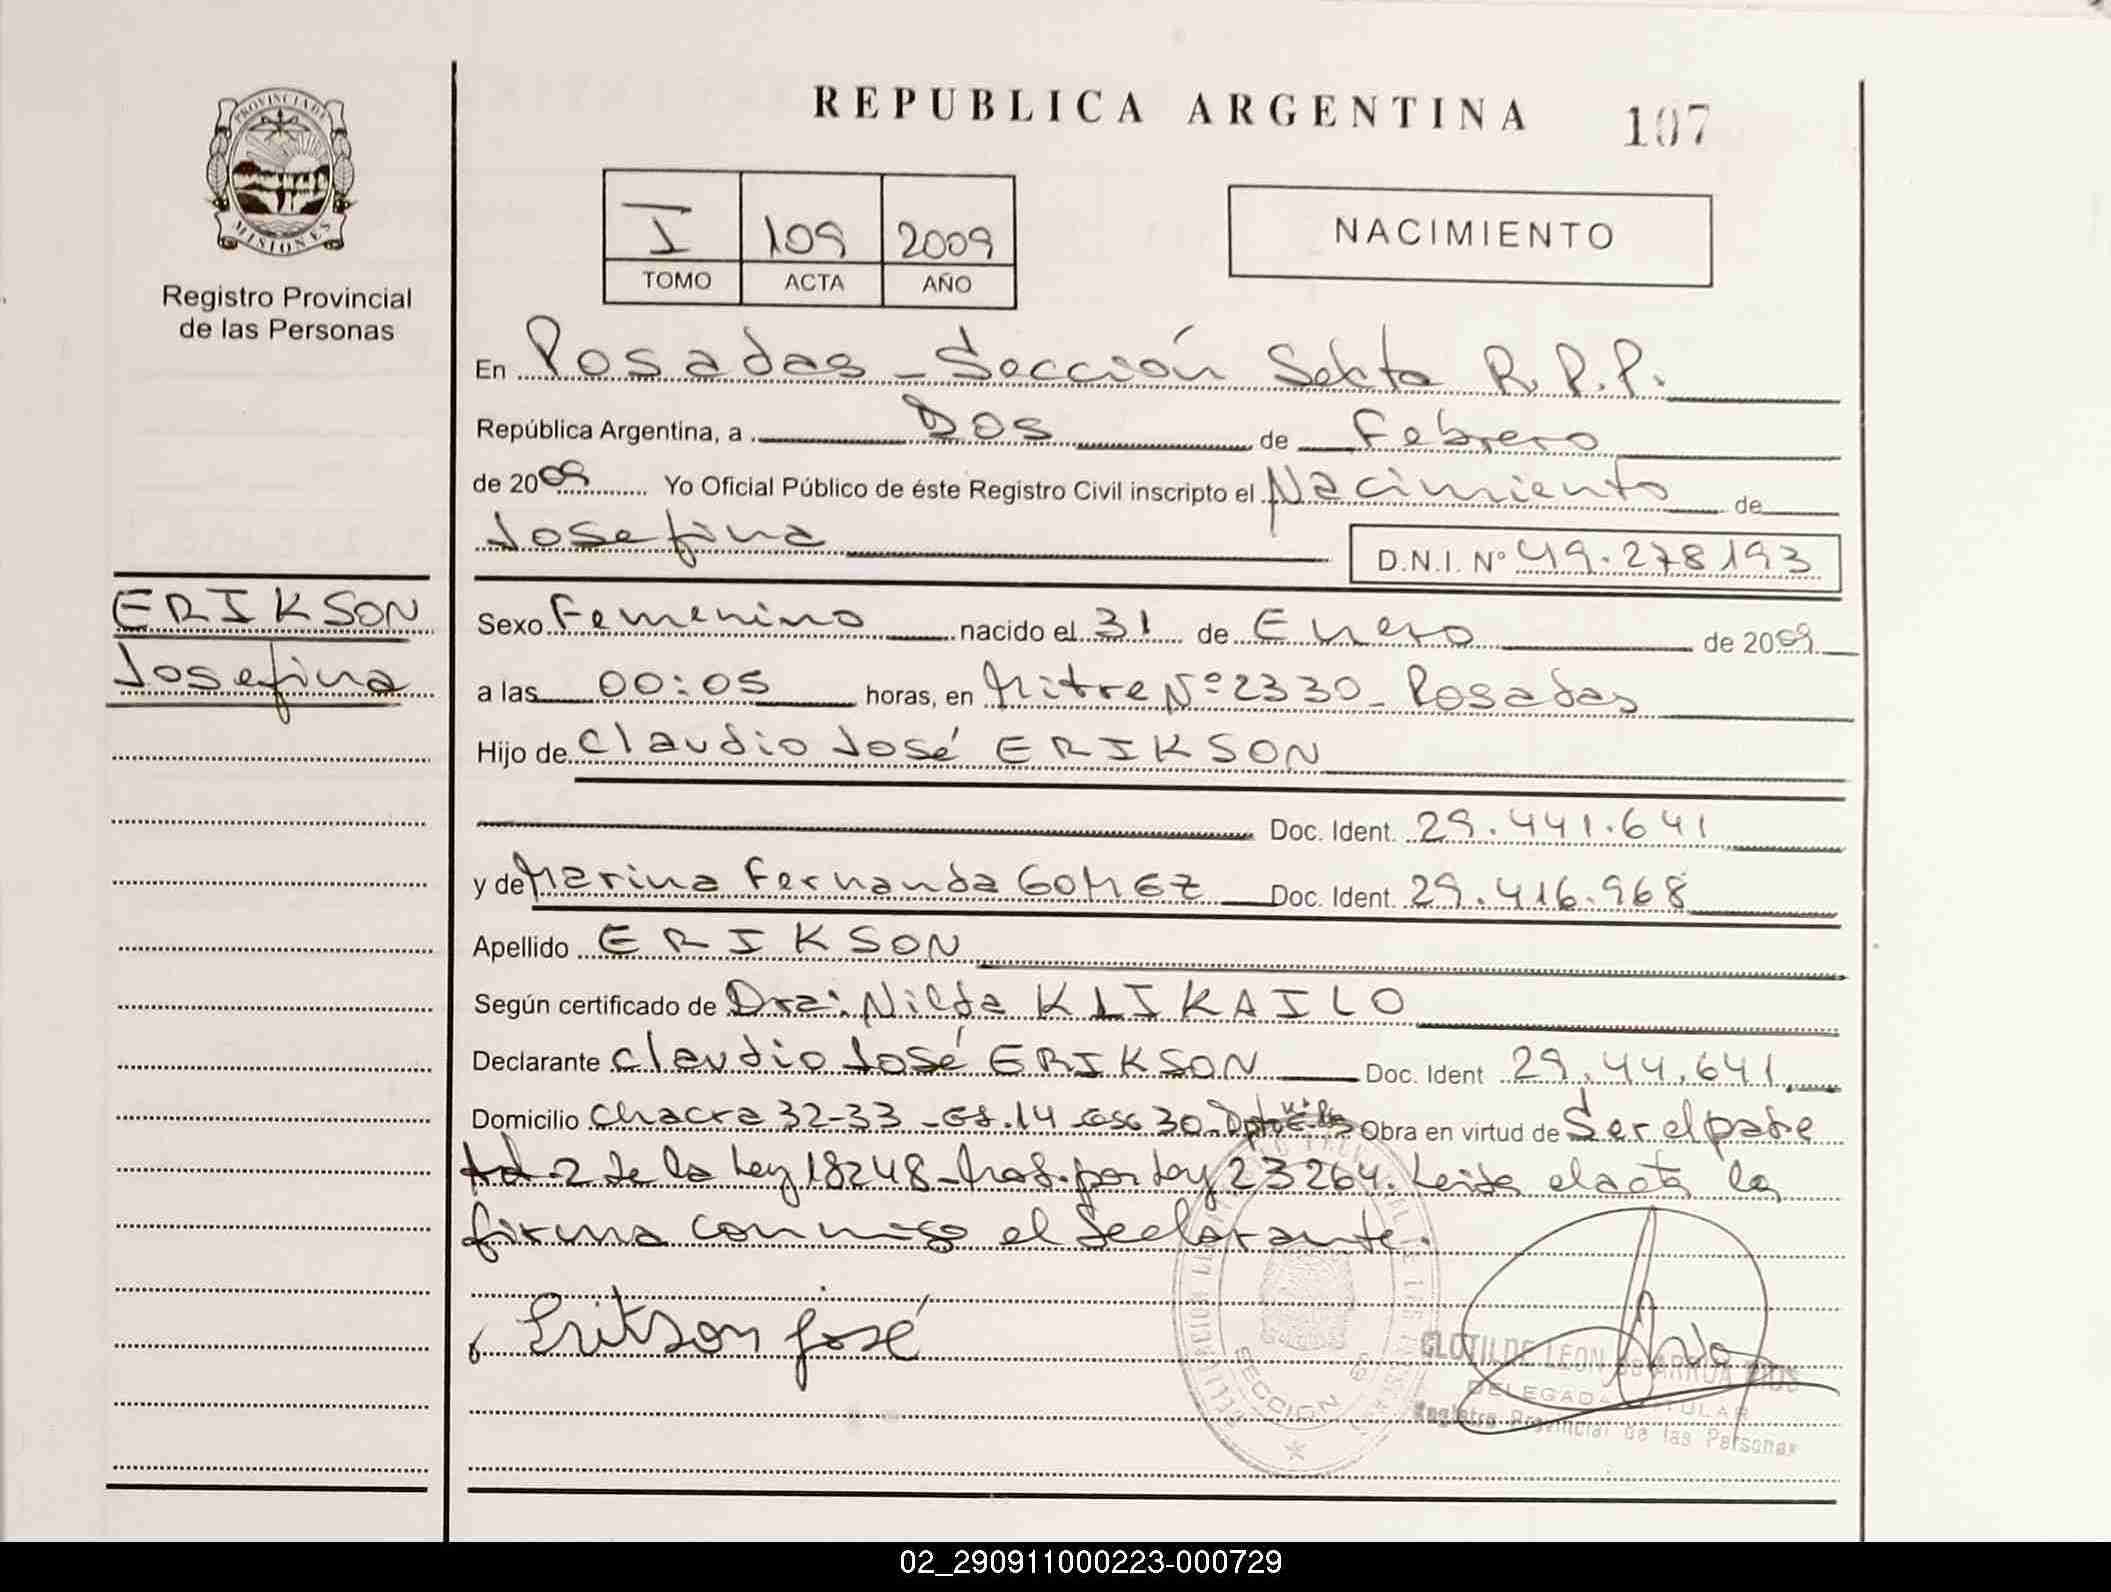 REPUBLICA ARGENTINA
107
PROVINCIA DE
MISIONES
Registro Provincial
de las Personas
I 109 2009
TOMO ACTA AÑO
NACIMIENTO
En Posadas - Sección Sexta R.P.P.
República Argentina, a Dos de Febrero
de 2009 Yo Oficial Público de éste Registro Civil inscripto el Nacimiento de
Josefina D.N.I. Nº 49.278193
ERIKSON
Josefina
Sexo Femenino nacido el 31 de Enero de 2009
a las 00:05 horas, en Mitre Nº 2330 - Posadas
Hijo de Claudio José ERIKSON
Doc. Ident. 29.441.641
y de Marina Fernanda GOMEZ Doc. Ident. 29.416.968
Apellido ERIKSON
Según certificado de Dra: Nilda KLIKAILO
Declarante Claudio José ERIKSON Doc. Ident 29.44.641
Domicilio Chacra 32-33 - Ed. 14 - 30 Obra en virtud de Ser el padre
2 de la Ley 18248 - Mod. por Ley 23264. Leida el acta la
firma conmigo el declarante.
Erikson José
SECCION 6
CLOTILDE LEON DE ARRUA RIOS
DELEGADA TITULAR
Registro Provincial de las Personas
02_290911000223-000729